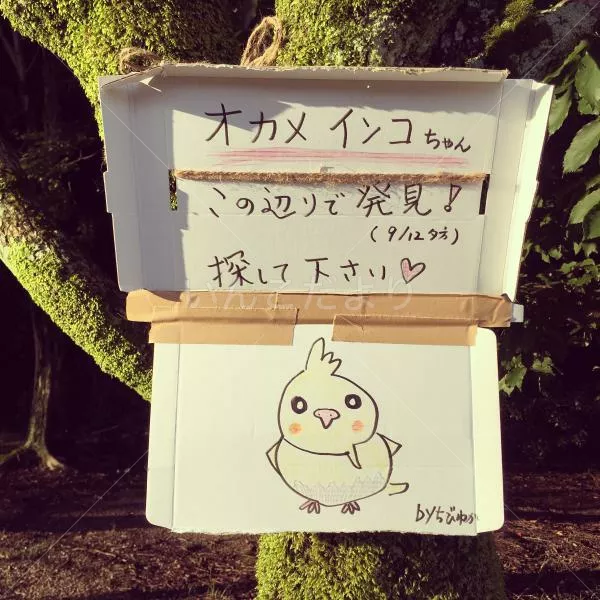 オカメインコちゃん
この辺りで発見!
(9/12夕方)
探して下さい♡
いんこだまり
byちびわか